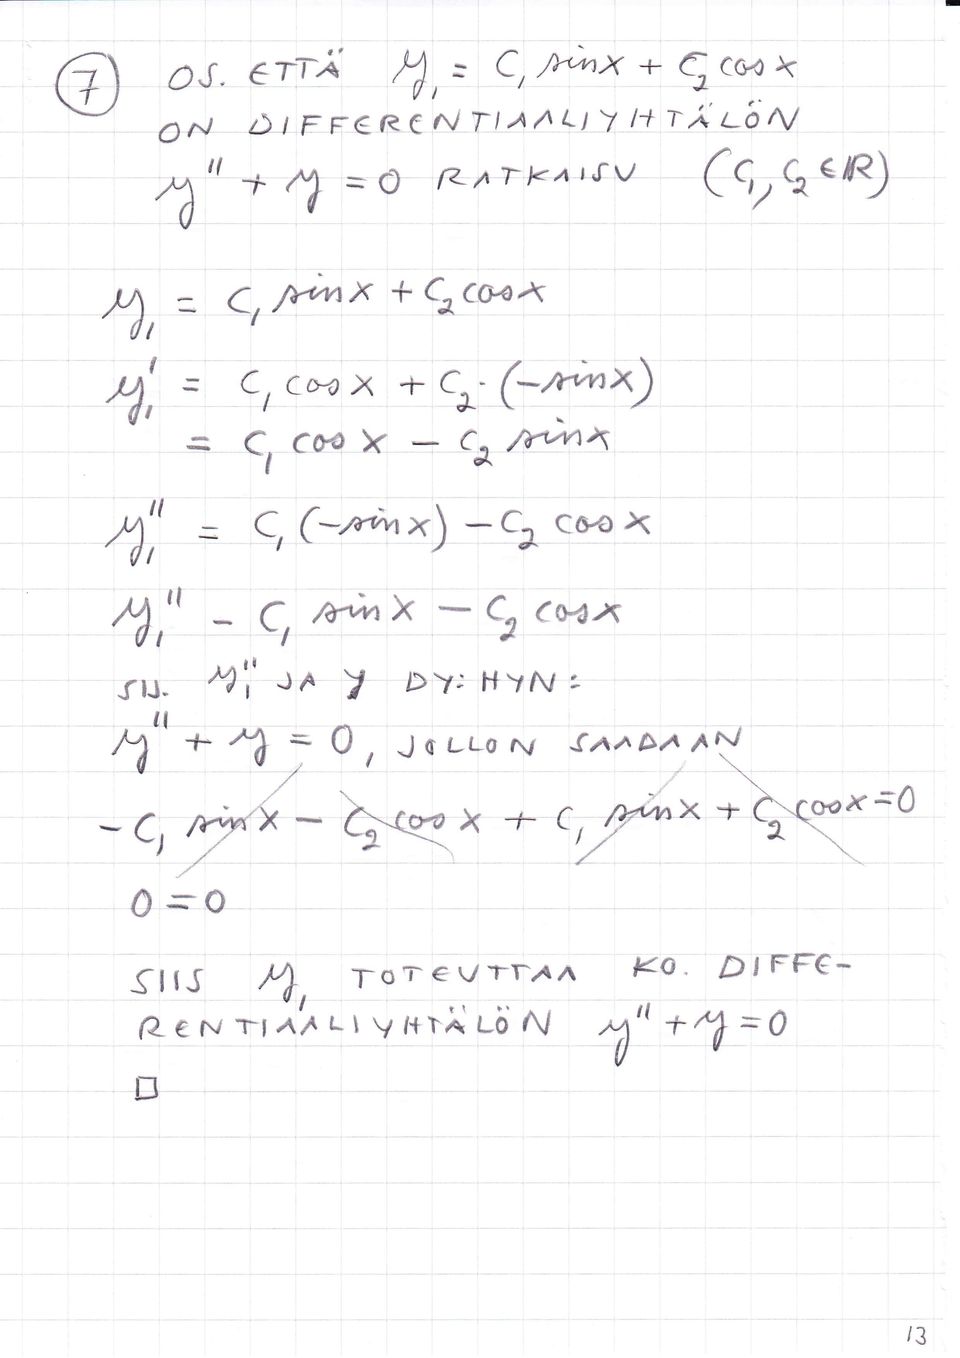 7 OS. ETTÄ y₁ = C₁ sinx + C₂ cos x
ON DIFFERENTIAALIYHTÄLÖN
y'' + y = 0 RATKAISU (C₁, C₂ ∈ ℝ)
y₁ = C₁ sinx + C₂ cosx
y₁' = C₁ cos x + C₂ · (-sinx)
= C₁ cos x - C₂ sinx
y₁'' = C₁ (-sinx) - C₂ cos x
y₁'' - C₁ sinx - C₂ cosx
SIJ. y₁'' JA y DY:HYN:
y'' + y = 0, JOLLON SAADAAN
- C₁ sinx - C₂ cos x + C₁ sinx + C₂ cosx = 0
0 = 0
SIIS y₁ TOTEUTTAA KO. DIFFE-
RENTIAALIYHTÄLÖN y'' + y = 0
□
13